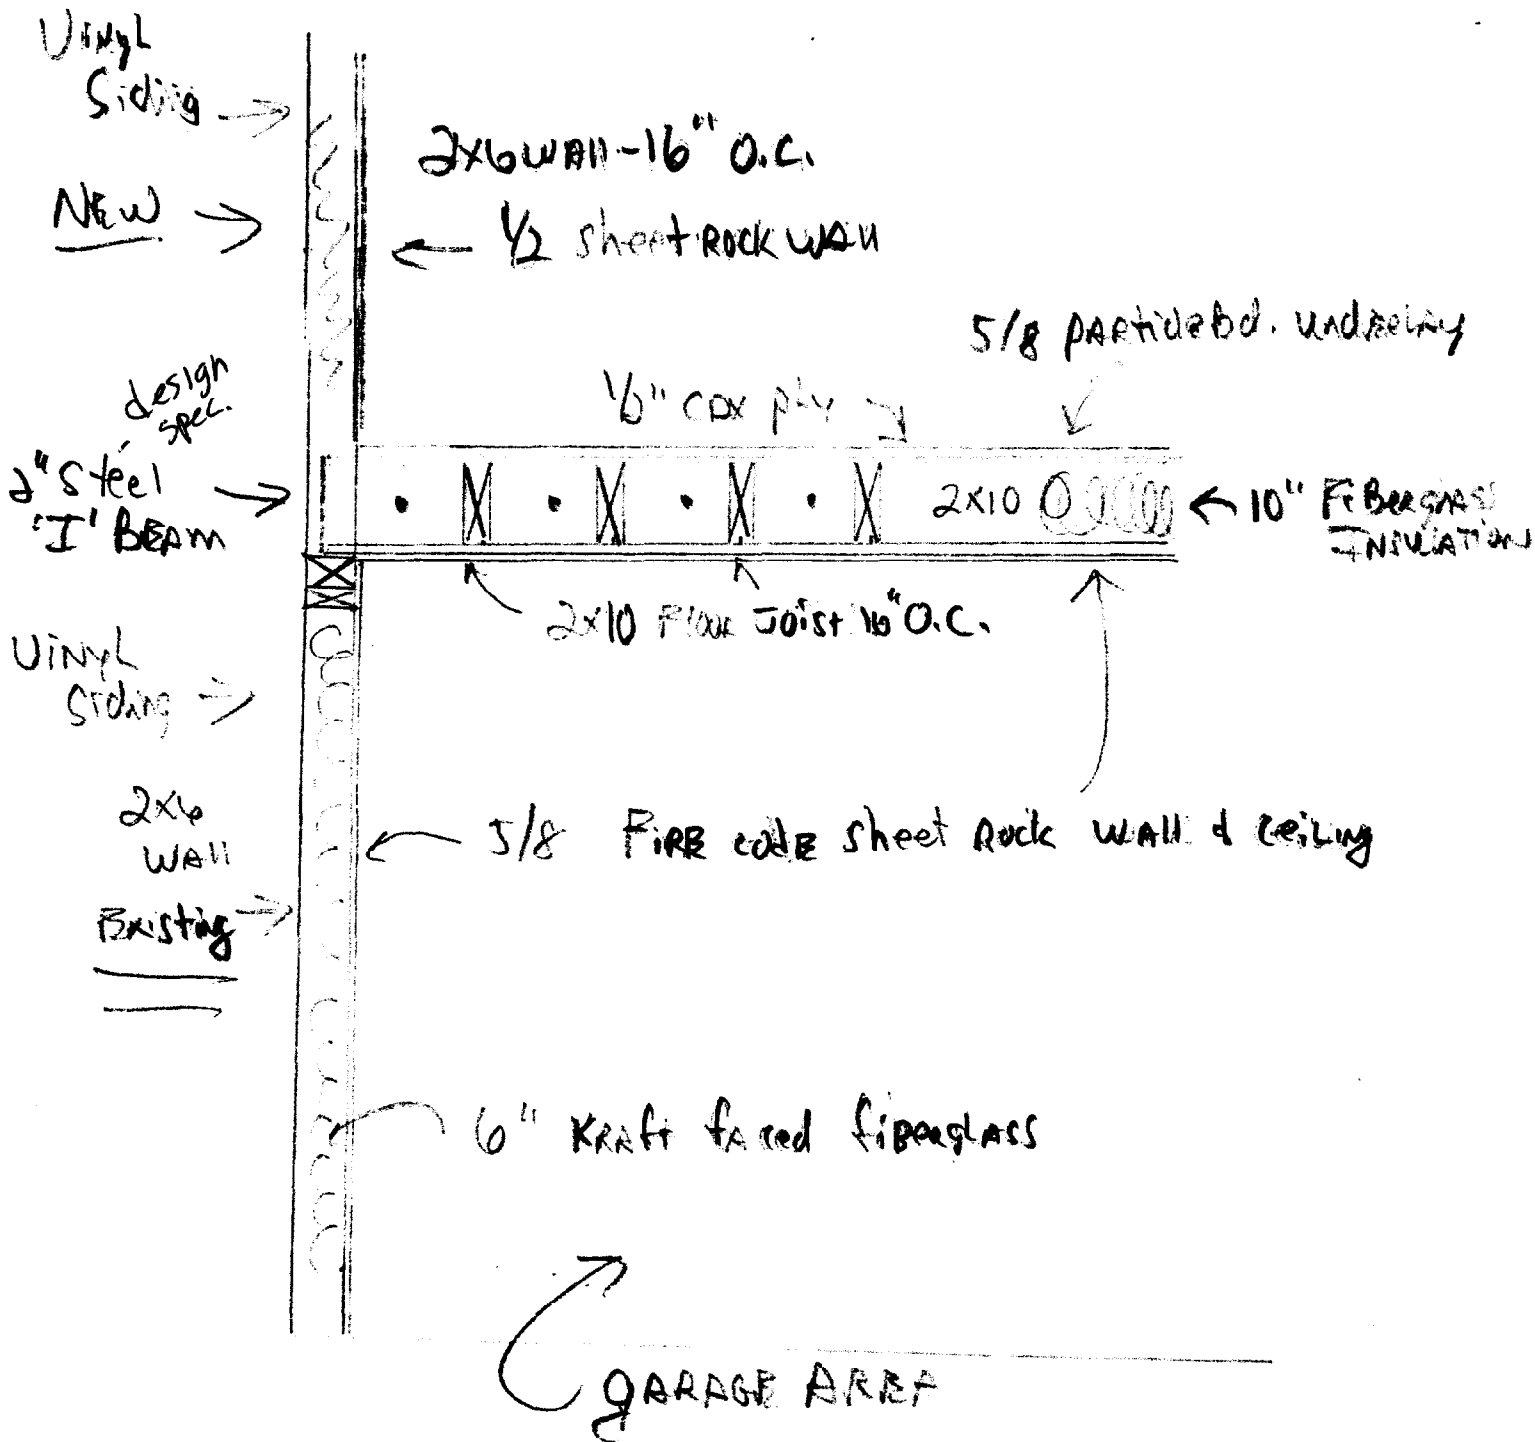 Vinyl
Siding
NEW
2x6 WAll-16" O.C.
1/2 sheet ROCK WAll
5/8 PARticlebd. UndeRlAy
design
spec.
CDX ply
2" Steel
'I' BEAM
2x10
10" FiBerglass
INSULATION
2x10 Floor Joist 16" O.C.
Vinyl
Siding
2x6
WAll
Existing
5/8 FIRE codE sheet Rock WAll & ceiling
6" KRAft fAced fiBerglASS
gARAGE AREA